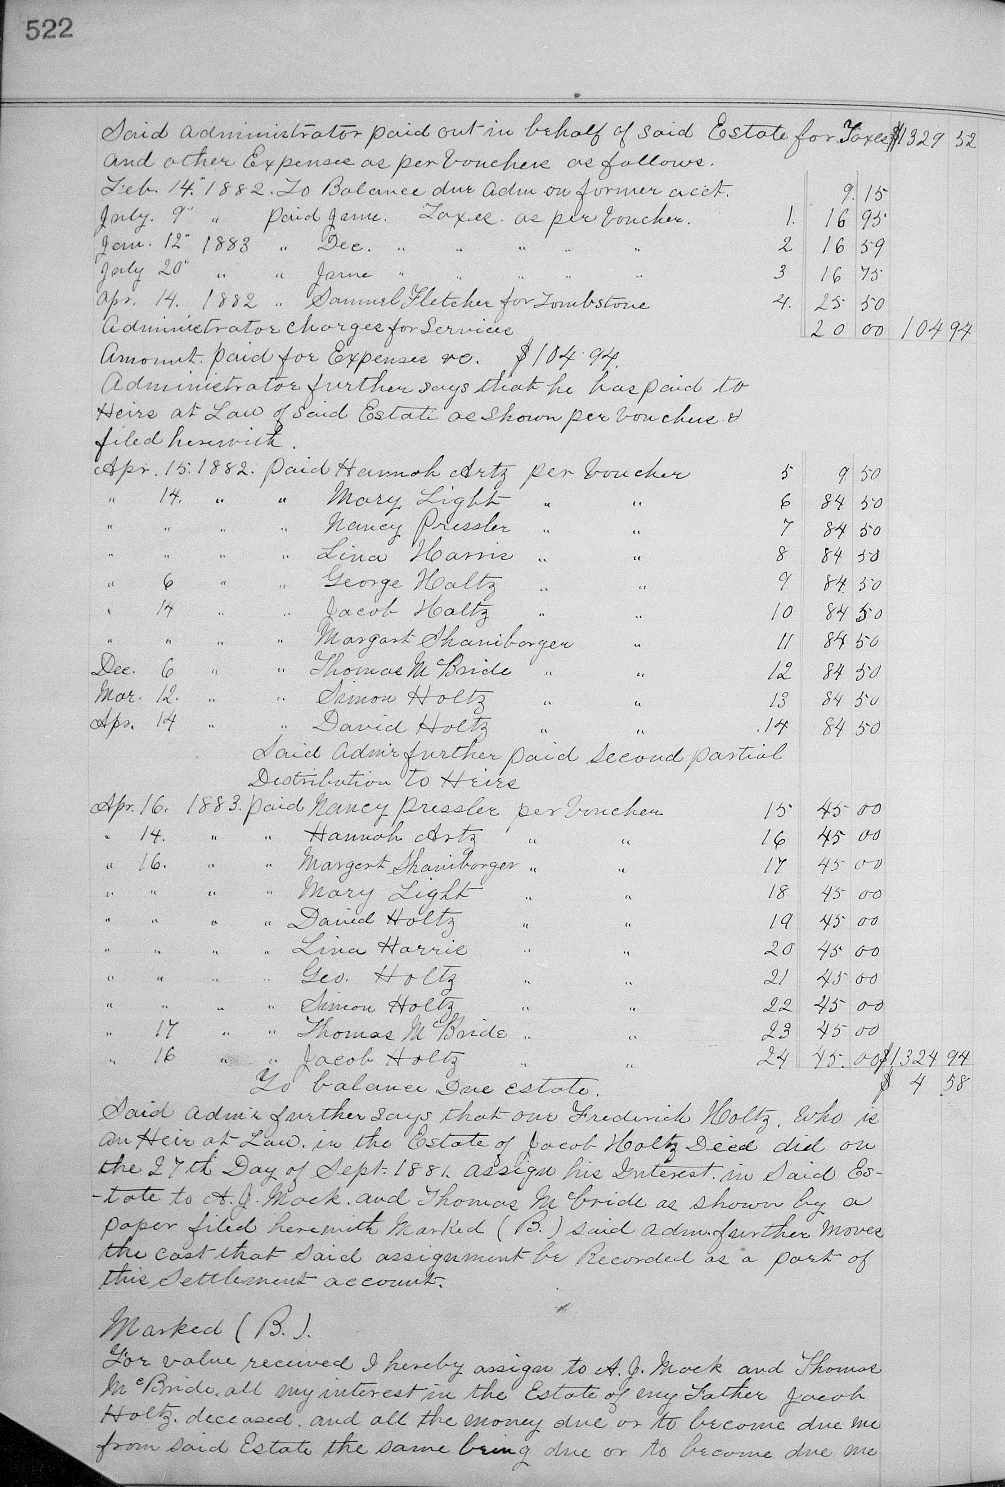 522
Said administrator paid out in behalf of said Estate for Taxes $1329 52
and other Expenses as per Vouchers as follows.
Feb. 14" 1882. To Balance due Adm on former acct. 9. 15
July. 9" " paid June. Taxes. as per Voucher. 1. 16 95
Jan. 12" 1883 " Dec. " " " " " 2 16 59
July 20" " " June " " " " " 3 16 75
Apr. 14. 1882 " Samuel Fletcher for Tombstone 4. 25 50
Administrator charges for Services 20 00 104 94
Amount. paid for Expenses &c. $104.94.
Administrator further says that he has paid to
Heirs at Law of said Estate as shown per Vouchers &
filed herewith.
Apr. 15. 1882. paid Hannah Artz per Voucher 5 9 50
" 14. " " Mary Light " " 6 84 50
" " " " Nancy Pressler " " 7 84 50
" " " " Lina Harris " " 8 84 50
" 6 " " George Holtz " " 9 84 50
" 14 " " Jacob Holtz " " 10 84 50
" " " " Margart Shaniborger " 11 84 50
Dec. 6 " " Thomas McBride " " 12 84 50
Mar. 12. " " Simon Holtz " " 13 84 50
Apr. 14 " " David Holtz " " .14 84 50
Said Adm'r further paid second partial
Distribution to Heirs
Apr. 16. 1883. paid Nancy Pressler per Voucher 15 45 00
" 14. " " Hannah Artz " " 16 45 00
" 16. " " Margert Shaniborger " " 17 45 00
" " " " Mary Light " " 18 45 00
" " " " David Holtz " " 19 45 00
" " " " Lina Harris " " 20 45 00
" " " " Geo. Holtz " " 21 45 00
" " " " Simon Holtz " " 22 45 00
" 17 " " Thomas McBride " " 23 45 00
" 16 " " Jacob Holtz " " 24 45. 00 $1324 94
To balance Due estate. $ 4 58
Said Adm'r further says that one Frederick Holtz. who is
an Heir at Law. in the Estate of Jacob Holtz Dec'd did on
the 27th Day of Sept. 1881. assign his Interest. in Said Es-
-tate to A. J. Mock. and Thomas McBride as shown by a
paper filed herewith Marked (B.) said Adm. further Moves
the cort that said assignment be Recorded as a part of
this Settlement account.
Marked (B.).
For value received I hereby assign to A. J. Mock and Thomas
McBride. all my interest in the Estate of my Father Jacob
Holtz. deceased. and all the money due or to become due me
from said Estate the same being due or to become due me